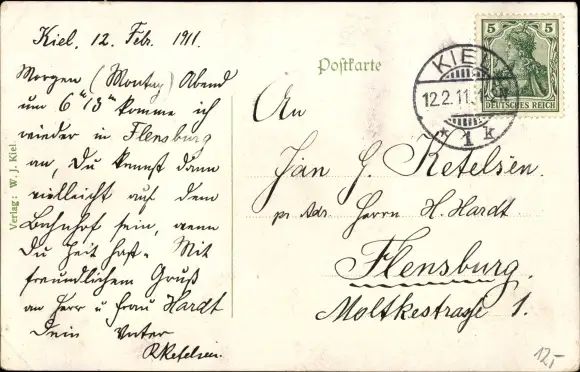 Kiel, 12. Febr. 1911.
Morgen (Montag) Abend
um 6 Uhr 13 komme ich
wieder in Flensburg
an, Du kannst dann
vielleicht auf dem
Bahnhof sein, wenn
Du Zeit hast. Mit
freundlichem Gruß
an Herr u Frau Hardt
Dein Vater
Ketelsen.
Verlag: W. J. Kiel.
Postkarte
5 5
DEUTSCHES REICH
KIEL
12.2.11.
* 1 k
An
Jan H. Ketelsen.
pr Adr. Herrn H. Hardt
Flensburg.
Moltkestrasse 1.
12,-